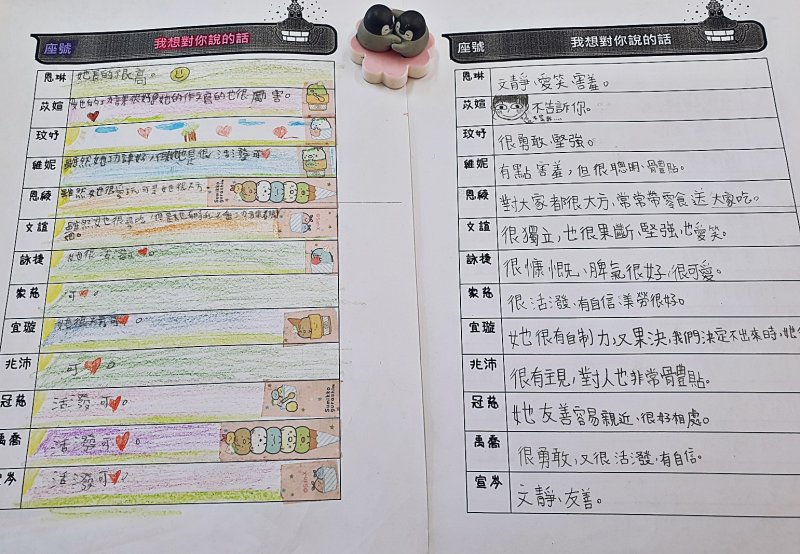 座號
我想對你說的話
恩琳 她長的很高。
苡媗
玟妤
維妮 雖然她功課好,但她也是很活潑可
恩綾 雖然她很愛玩可是她很大方
文誼
詠捷 她很活潑可
家慈 可
宜璇 她很大方可
兆沛 可
冠慈 活潑可
禹喬 活潑可
宣岑 活潑可
Sumikko gurashi
座號
我想對你說的話
恩琳 文靜、愛笑、害羞。
苡媗 不告訴你。
玟妤 很勇敢、堅強。
維妮 有點害羞,但很聰明、骨體貼。
恩綾 對大家都很大方,常常帶零食送大家吃。
文誼 很獨立,也很果斷、堅強、也愛笑。
詠捷 很慷慨、脾氣很好,很可愛。
家慈 很活潑、有自信、美勞很好。
宜璇 她很有自制力,又果決,我們決定不出來時,她
兆沛 很有主見,對人也非常骨體貼。
冠慈 她友善容易親近,很好相處。
禹喬 很勇敢,又很活潑、有自信。
宣岑 文靜、友善。